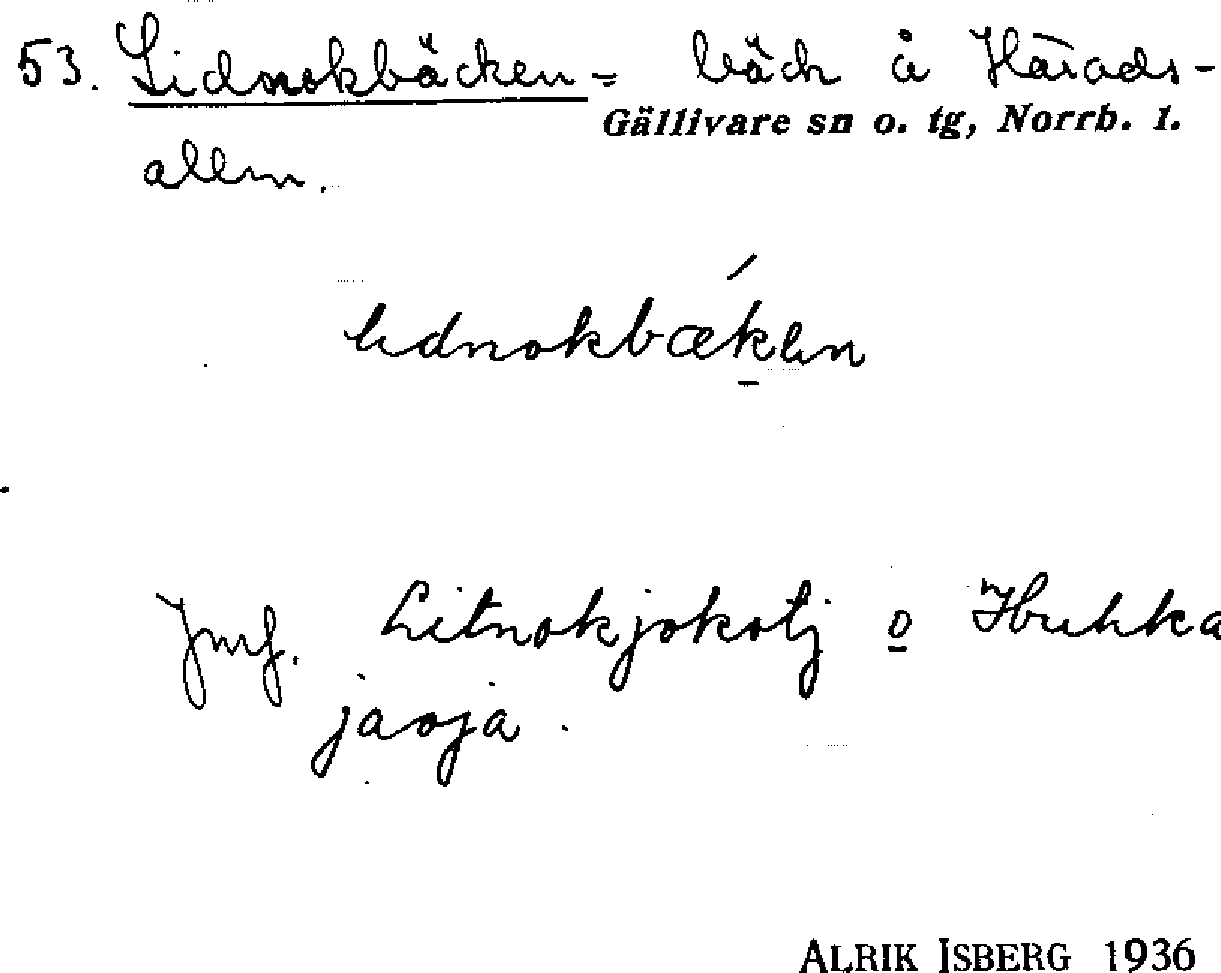 53. Lidnokbäcken = bäck å Härads-
Gällivare sn o. tg, Norrb. l.
allm.
lidnokbækken
Jmf. Litnokjokotj o
jaoja.
ALRIK ISBERG 1936